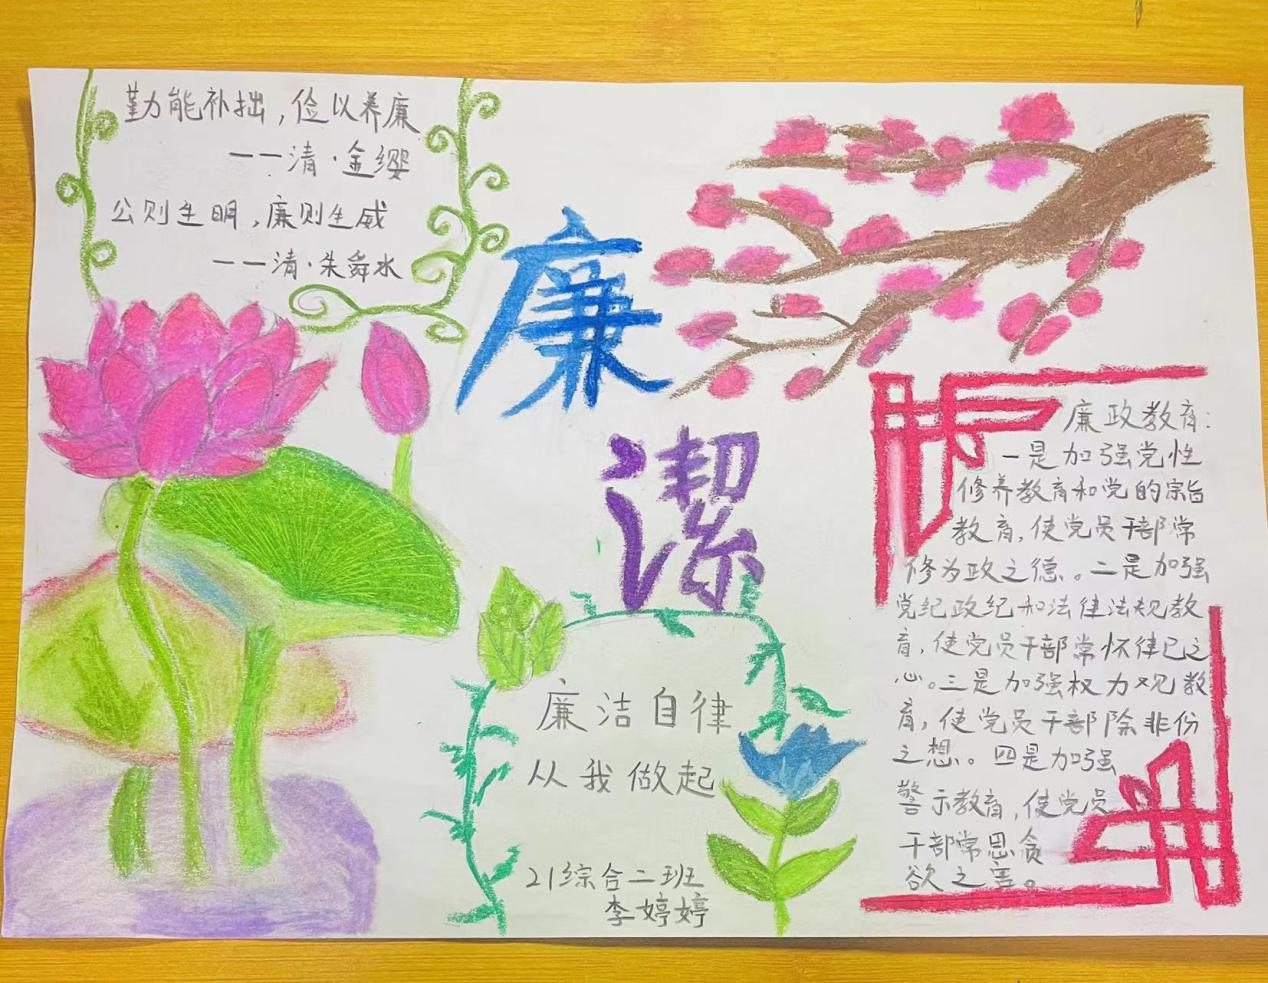 勤能补拙，俭以养廉
——清·金缨
公则生明，廉则生威
——清·朱舜水
廉
潔
廉洁自律
从我做起
21综合二班
李婷婷
廉政教育：
一是加强党性
修养教育和党的宗旨
教育，使党员干部常
修为政之德。二是加强
党纪政纪和法律法规教
育，使党员干部常怀律己之
心。三是加强权力观教
育，使党员干部除非份
之想。四是加强
警示教育，使党员
干部常思贪
欲之害。